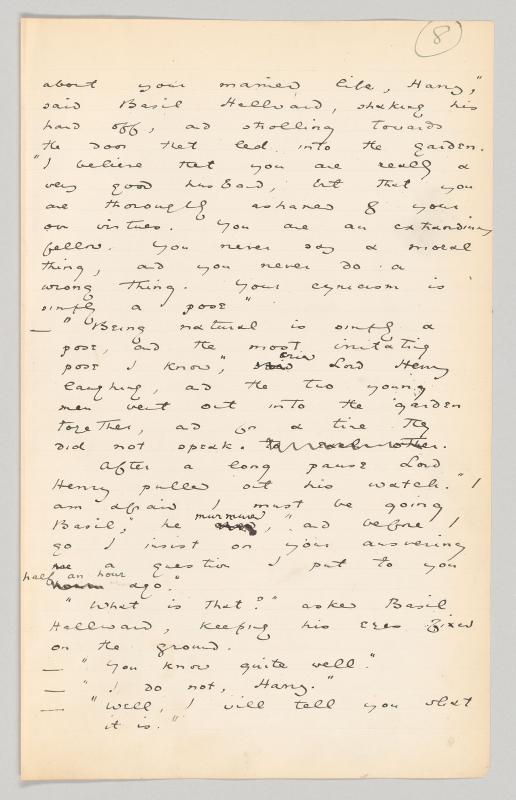 8
about your married life, Harry,"
said Basil Hallward, shaking his
hand off, and strolling towards
the door that led into the garden.
"I believe that you are really a
very good husband, but that you
are thoroughly ashamed of your
own virtues. You are an extraordinary
fellow. You never say a moral
thing, and you never do a
wrong thing. Your cynicism is
simply a pose"
— "Being natural is simply a
pose, and the most irritating
pose I know," said cried Lord Henry
laughing, and the two young
men went out into the garden
together, and for a time they
did not speak. to each other.
After a long pause Lord
Henry pulled out his watch. "I
am afraid I must be going
Basil," he murmured, "and before I
go I insist on your answering
me a question I put to you
half an hour ago."
"What is that?" asked Basil
Hallward, keeping his eyes fixed
on the ground.
— "You know quite well."
— "I do not, Harry."
— "Well, I will tell you what
it is."